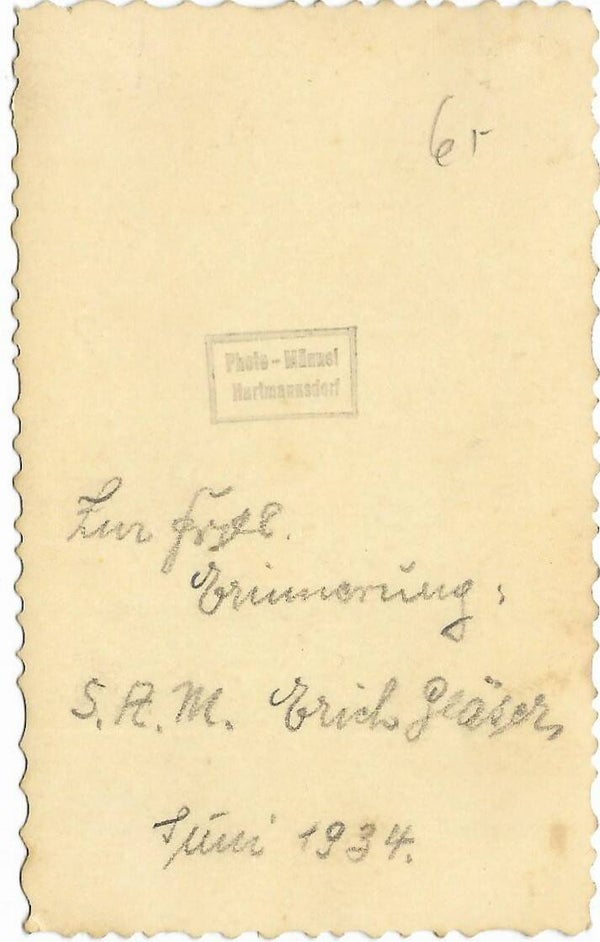 Photo - Männel
Hartmannsdorf
Zur frdl.
Erinnerung:
S.A.M. Erich Gläser,
Juni 1934.